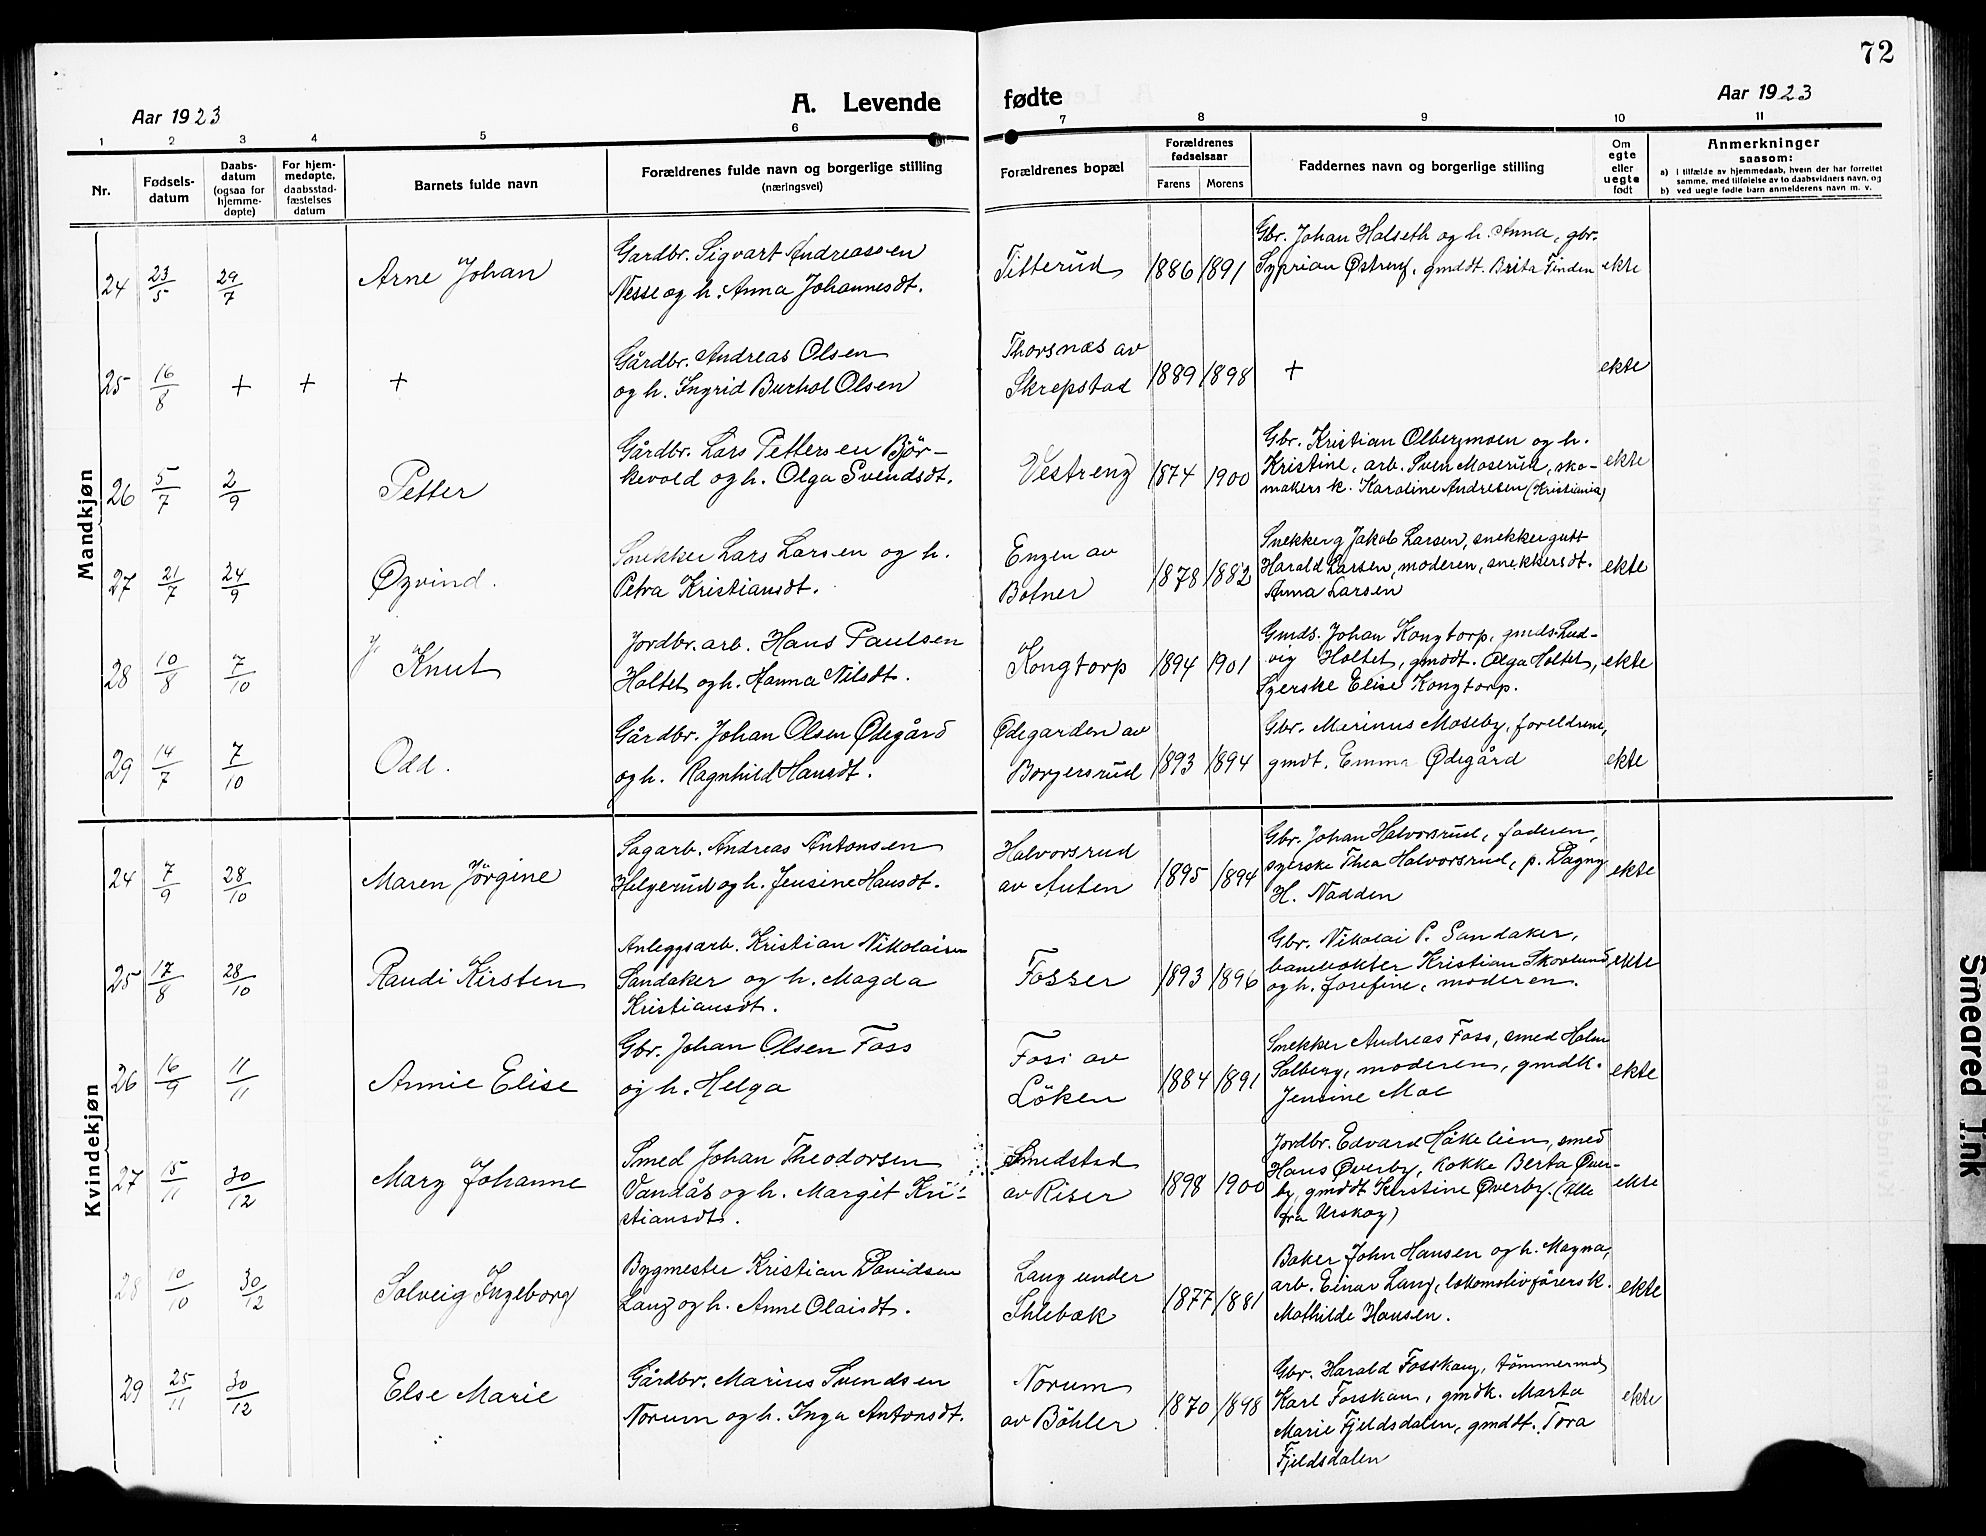 72
Aar 1923
A. Levende fødte
Aar 1923
1 2 3 4 5 6 7 8 9 10 11
Nr.
Fødsels-
datum
Daabs-
datum
(ogsaa for
hjemme-
døpte)
For hjem-
medøpte,
daabsstad-
fæstelses
datum
Barnets fulde navn
Forældrenes fulde navn og borgerlige stilling
(næringsvei)
Forældrenes bopæl
Forældrenes
fødselsaar
Farens Morens
Faddernes navn og borgerlige stilling
Om
egte
eller
uegte
født
Anmerkninger
saasom:
a) i tilfælde av hjemmedaab, hvem der har forrettet
samme, med tilføielse av to daabsvidners navn, og
b) ved uegte fødte barn anmelderens navn m. v.
Mandkjøn
24 23/5 29/7 Arne Johan
Gardbr. Sigvart Andreassen
Nesse og h. Anna Johannesdt.
Titterud 1886 1891
Gbr. Johan Holseth og h. Anna, gbr.
Syprian Østreng, gmdt. Brita Finden
ekte
25 16/8 + + +
Gårdbr. Andreas Olsen
og h. Ingrid Burhol Olsen
Thorsnæs av
Skrepstad
1889 1898 + ekte
26 5/7 2/9 Petter
Gårdbr. Lars Pettersen Björ-
kevold og h. Olga Svendsdt.
Vestreng 1874 1900
Gbr. Kristian Olbergmoen og h.
Kristine, arb. Sven Moserud, sko-
makers k. Karoline Andresen (Kristiania)
ekte
27 21/7 24/9 Øyvind.
Snekker Lars Larsen og h.
Petra Kristiansdt.
Engen av
Botner
1878 1882
Snekker g Jakob Larsen, snekkergutt
Harald Larsen, moderen, snekkersdt.
Anna Larsen
ekte
28 10/8 7/10 Knut
Jordbr.arb. Hans Paulsen
Holtet og h. Hanna Nilsdt.
Kongtorp 1894 1901
Gmds. Johan Kongtorp, gmds. Lud-
vig Holtet, gmdt. Olga Holtet,
Syerske Elise Kongtorp.
ekte
29 14/7 7/10 Odd.
Gårdbr. Johan Olsen Ødegård
og h. Ragnhild Hansdt.
Ødegarden av
Borgersrud
1893 1894
Gbr. Marinus Moseby, foreldrene,
gmdt. Emma Ødegård
ekte
Kvindekjøn
24 7/9 28/10 Maren Jörgine
Sagarb. Andreas Antonsen
Helgerud og h. Jensine Hansdt.
Halvorsrud
av Auten
1895 1894
Gbr. Johan Halvorsrud, faderen,
syerske Thea Halvorsrud, p. Dagny
H. Nadden
ekte
25 17/8 28/10 Randi Kirsten
Anleggsarb. Kristian Nikolaisen
Sandaker og h. Magda
Kristiansdt.
Fosser 1893 1896
Gbr. Nikolai P. Sandaker,
banevokter Kristian Skovlund
og h. Josefine, moderen.
ekte
26 16/9 11/11 Annie Elise
Gbr. Johan Olsen Foss
og h. Helga
Foss av
Löken
1884 1891
Snekker Andreas Foss, smed Holm
Solberg, moderen, gmdk.
Jensine Moe
ekte
27 15/11 30/12 Mary Johanne
Smed Johan Theodorsen
Vandås og h. Margit Kri-
stiansdt.
Smedstad
av Riser
1898 1900
Jordbr. Edvard Håkelien, smed
Hans Øverby, kokke Berta Øver-
by, gmdt Kirstine Øverby. (Alle
fra Urskog)
ekte
28 10/10 30/12 Solveig Ingeborg
Bygmester Kristian Davidsen
Lang og h. Anne Olaisdt.
Lang under
Ihlebæk
1877 1881
Baker John Hansen og h. Magna,
arb. Einar Lang, lokomotivförers k.
Mathilde Hansen.
ekte
29 25/11 30/12 Else Marie
Gårdbr. Marius Svendsen
Norum og h. Inga Antonsdt.
Norum
av Böhler
1870 1898
Gbr. Harald Fosskaug, tömmermd
Karl Fosskau, gmdk. Marta
Marie Fjeldsdalen, gmddt. Tora
Fjeldsdalen
ekte
Smeared Ink